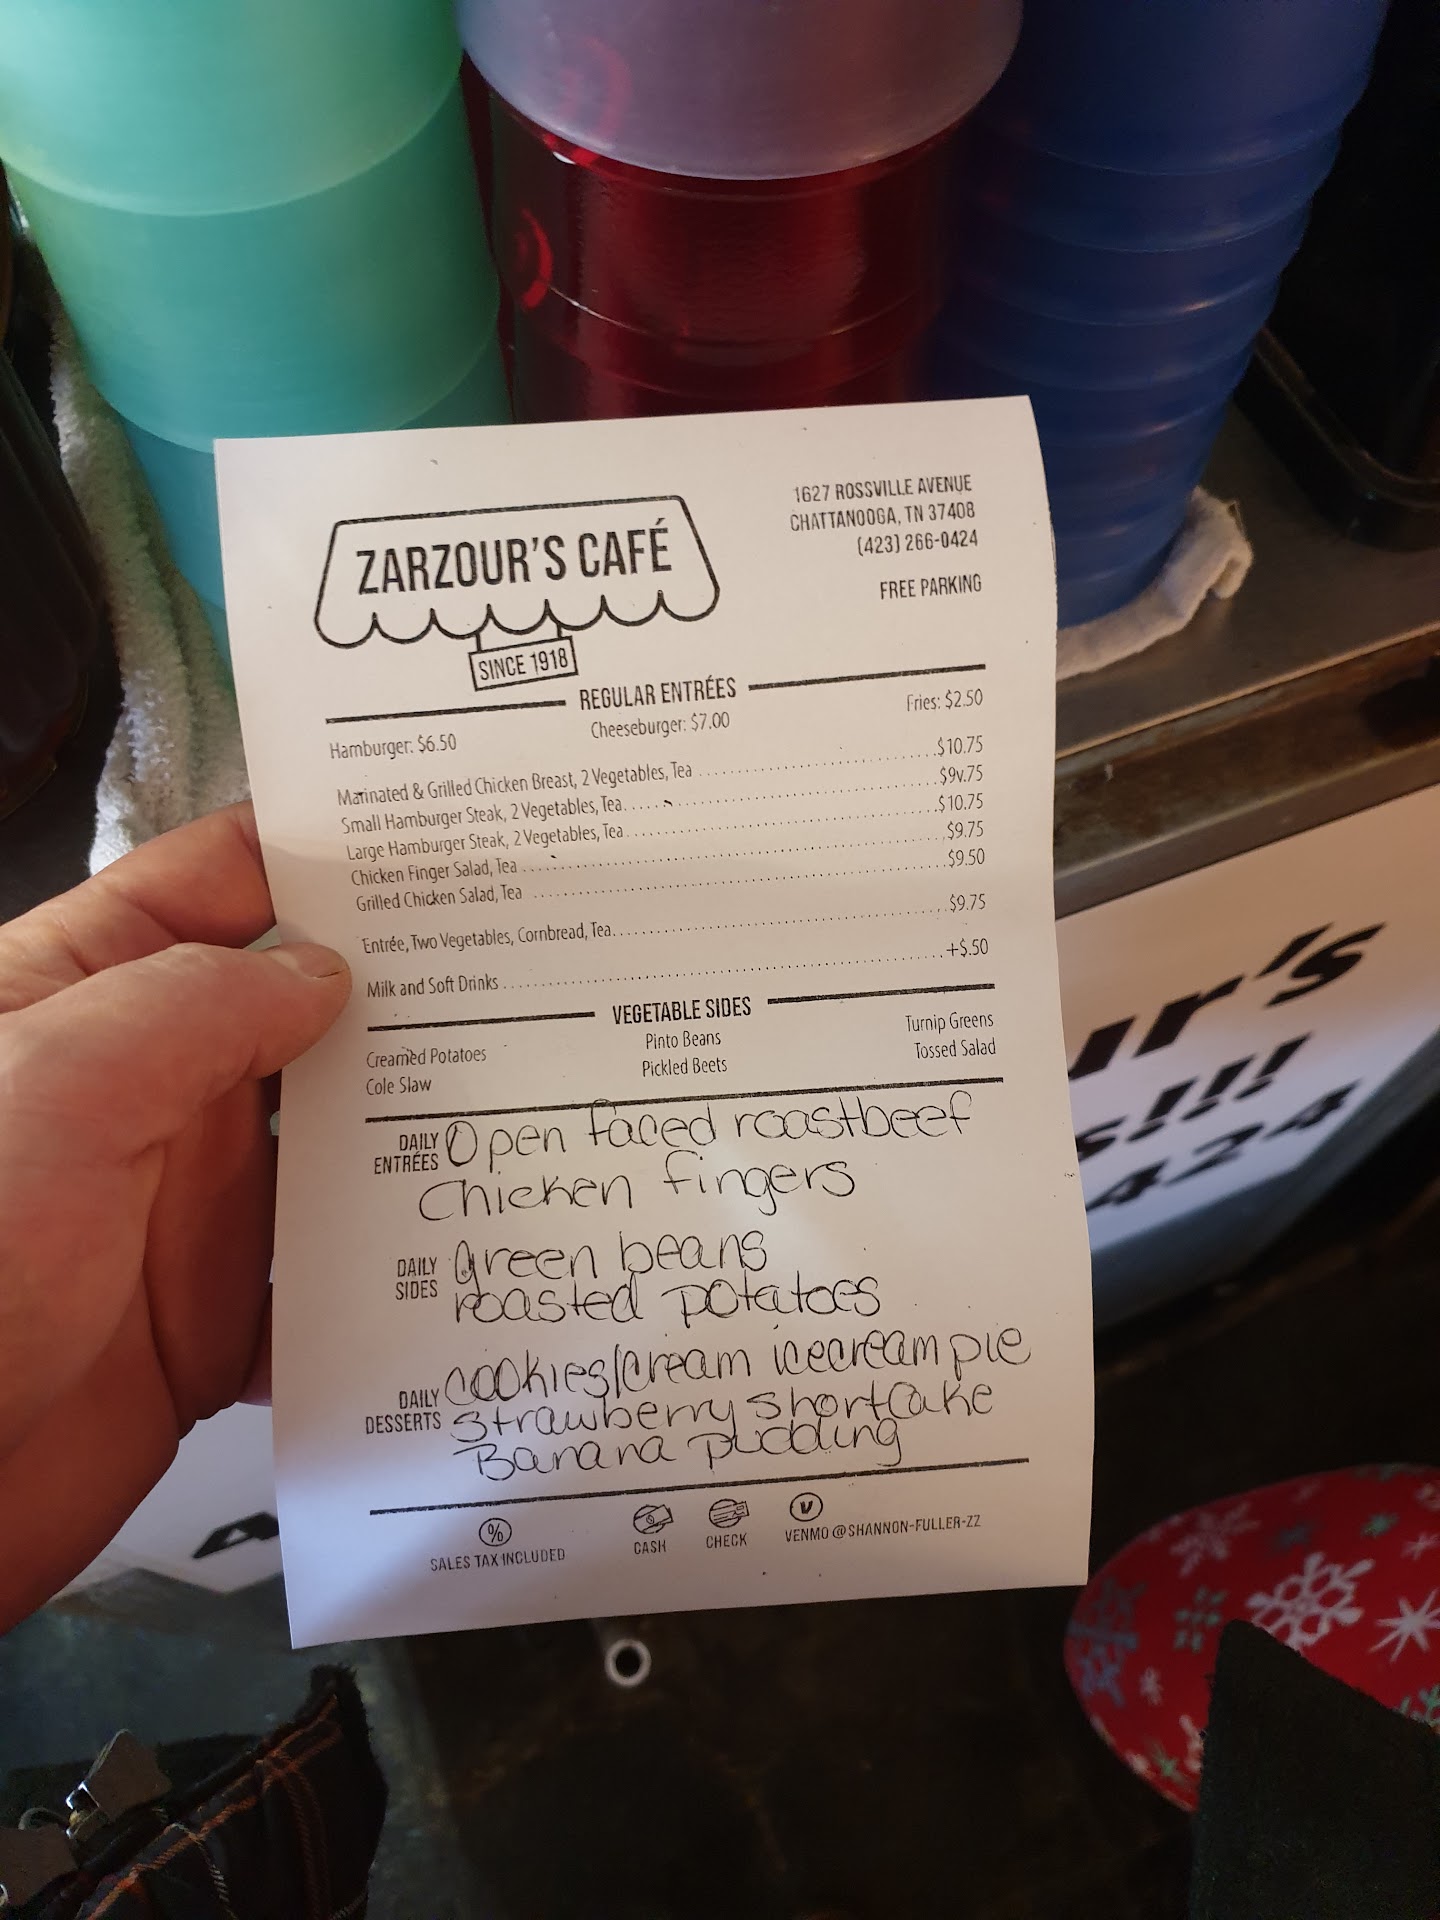 ZARZOUR'S CAFÉ
SINCE 1918
1627 ROSSVILLE AVENUE
CHATTANOOGA, TN 37408
(423) 266-0424
FREE PARKING
REGULAR ENTRÉES
Hamburger: $6.50 Cheeseburger: $7.00 Fries: $2.50
Marinated & Grilled Chicken Breast, 2 Vegetables, Tea $10.75
Small Hamburger Steak, 2 Vegetables, Tea $9v.75
Large Hamburger Steak, 2 Vegetables, Tea $10.75
Chicken Finger Salad, Tea $9.75
Grilled Chicken Salad, Tea $9.50
Entrée, Two Vegetables, Cornbread, Tea $9.75
Milk and Soft Drinks +$.50
VEGETABLE SIDES
Creamed Potatoes Pinto Beans Turnip Greens
Cole Slaw Pickled Beets Tossed Salad
DAILY ENTRÉES
Open faced roastbeef
Chicken fingers
DAILY SIDES
green beans
roasted potatoes
DAILY DESSERTS
cookies/cream icecream pie
Strawberry shortcake
Banana pudding
SALES TAX INCLUDED
CASH
CHECK
VENMO @SHANNON-FULLER-ZZ
ur's
s!!!
424